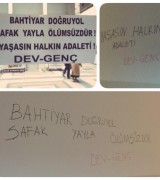 BAHTİYAR DOĞRUYOL
ŞAFAK YAYLA ÖLÜMSÜZDÜR!
YAŞASIN HALKIN ADALETİ!
DEV-GENÇ
YAŞASIN HALKIN
ADALETİ
DEV-GENÇ
BAHTİYAR DOĞRUYOL
ŞAFAK YAYLA ÖLÜMSÜZDÜR
DEV-GENÇ